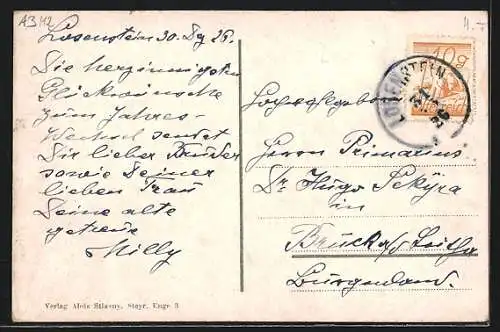 A3 H2
4.-
Losenstein 30. Dez 26.
Die herzinnigsten
Glückwünsche
zum Jahres-
Wechsel sendet
Dir lieber Bruder
sowie Deiner
lieben Frau
Deine alte
getreue
Milly
10g
Hochwohlgeboren
Herrn Primarius
Dr Hugo Sekýra
in
Bruck a/d Leitha
Burgenland.
Verlag Alois Stlawny, Steyr, Enge 3